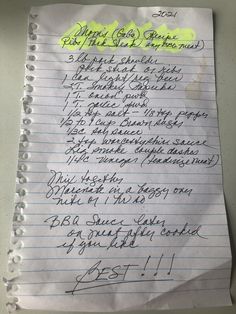 2021
(BBQ) Recipe
Ribs / Pork Steak / any
3 lb pork shoulder
Pork steak or Ribs
1 can light beer
2 T. Smokey Paprika
1 T. onion pwd
1 T. garlic pwd
1/2 tsp salt - 1/3 tsp pepper
1/2 to 1 cup Brown Sugar
1/3 C soy sauce
2 tsp worcestershire sauce
liq smoke couple dashes
1/4 C vinegar (tenderize meat)
Mix together
Marinate in a baggy over
nite or 1 hr
BBQ Sauce
on meat after cooked
if you like
BEST!!!